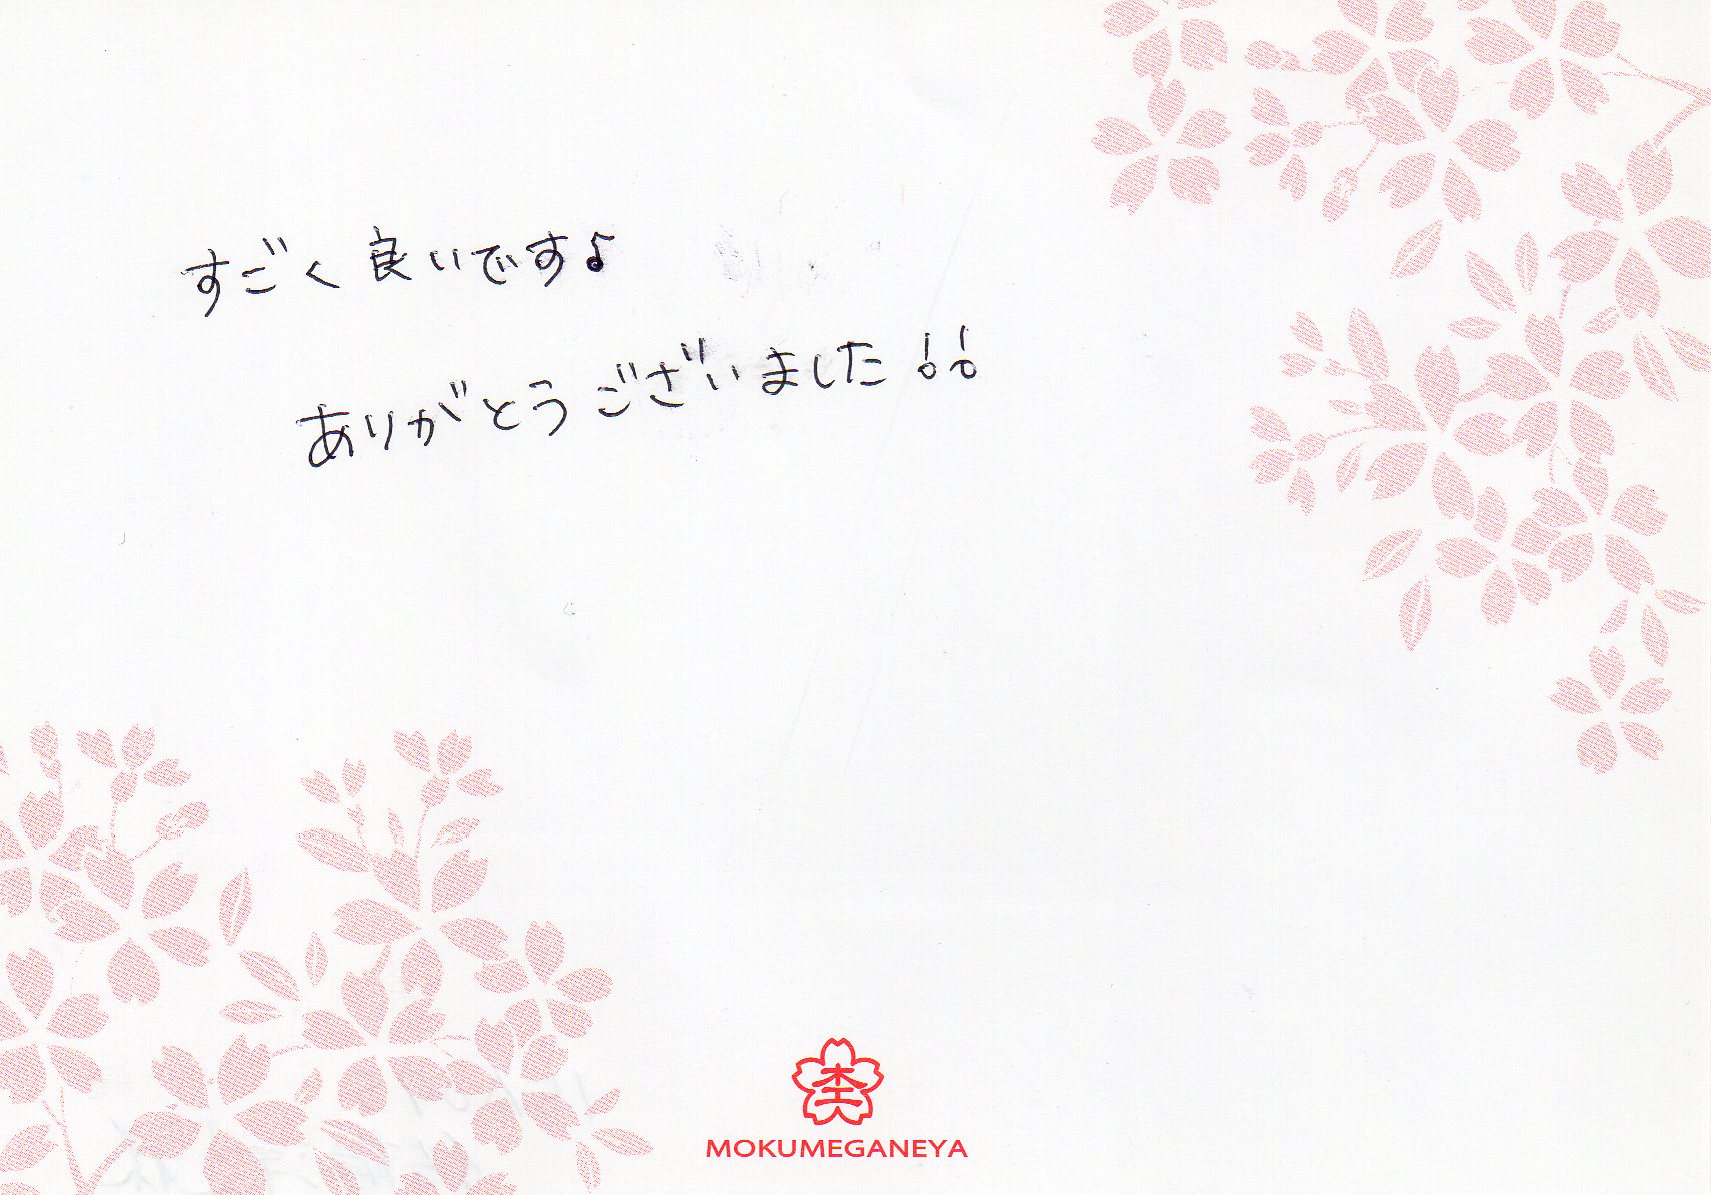 すごく良いです♪
ありがとうございました!!
木工人
MOKUMEGANEYA